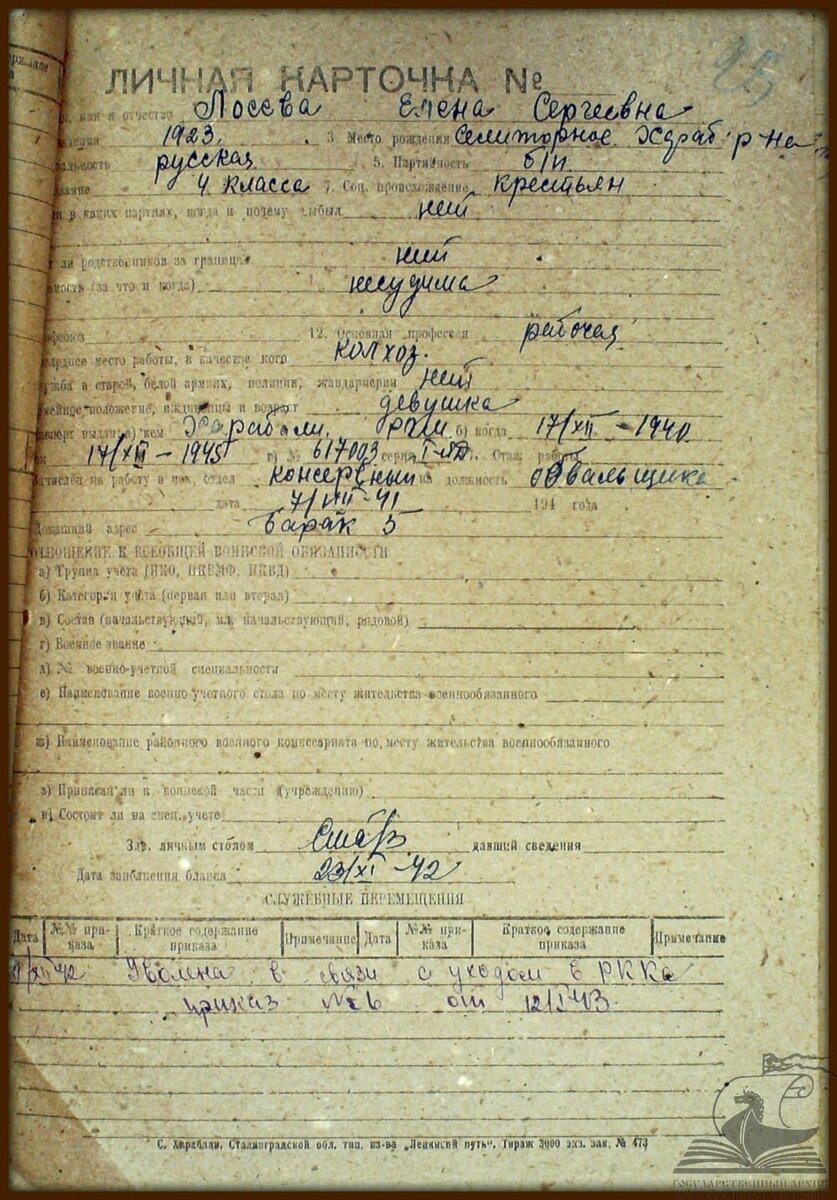 ЛИЧНАЯ КАРТОЧКА №
имя и отчество Лосева Елена Сергеевна
1923. 3. Место рождения Селиторное Хараб р-на
русская 5. Партийность б/п
4 класса 7. Соц. происхождение крестьян
в каких партиях, когда и почему выбыл нет
ли родственников за границей нет
(за что и когда) несудима
12. Основная профессия рабочая
место работы, в качестве кого колхоз.
в старой, белой армиях, полиции, жандармерии нет
положение, иждивенцы и возраст девушка
выдан а) кем Харабали. б) когда 17/XII-1940
17/XII-1945 г) № 617003 серия Стаж работы
Зачислен на работу в цех, отдел консервный на должность
дата 7/VIII-41 194 года
Домашний адрес барак 5
ОТНОШЕНИЕ К ВСЕОБЩЕЙ ВОИНСКОЙ ОБЯЗАННОСТИ
а) Группа учета (НКО, НКВМФ, НКВД)
б) Категория учета (первая или вторая)
в) Состав (начальствующий, мл. начальствующий, рядовой)
г) Военное звание
д) № военно-учетной специальности
е) Наименование военно-учетного стола по месту жительства военнообязанного
ж) Наименование районного военного комиссариата по месту жительства военнообязанного
з) Приписан ли к воинской части (учреждению)
и) Состоит ли на спец. учете
Зав. личным столом давший сведения
Дата заполнения бланка 23/XI-42
СЛУЖЕБНЫЕ ПЕРЕМЕЩЕНИЯ
Дата №№ приказа Краткое содержание приказа Примечание Дата №№ приказа Краткое содержание приказа Примечание
/XII 42 Уволена в связи с уходом в РККА
приказ № 6 от 12/I 43
С. Харабали, Сталинградской обл. тип. из-ва „Ленинский путь“. Тираж 3000 экз. зак. № 473
ГОСУДАРСТВЕННЫЙ АРХИВ